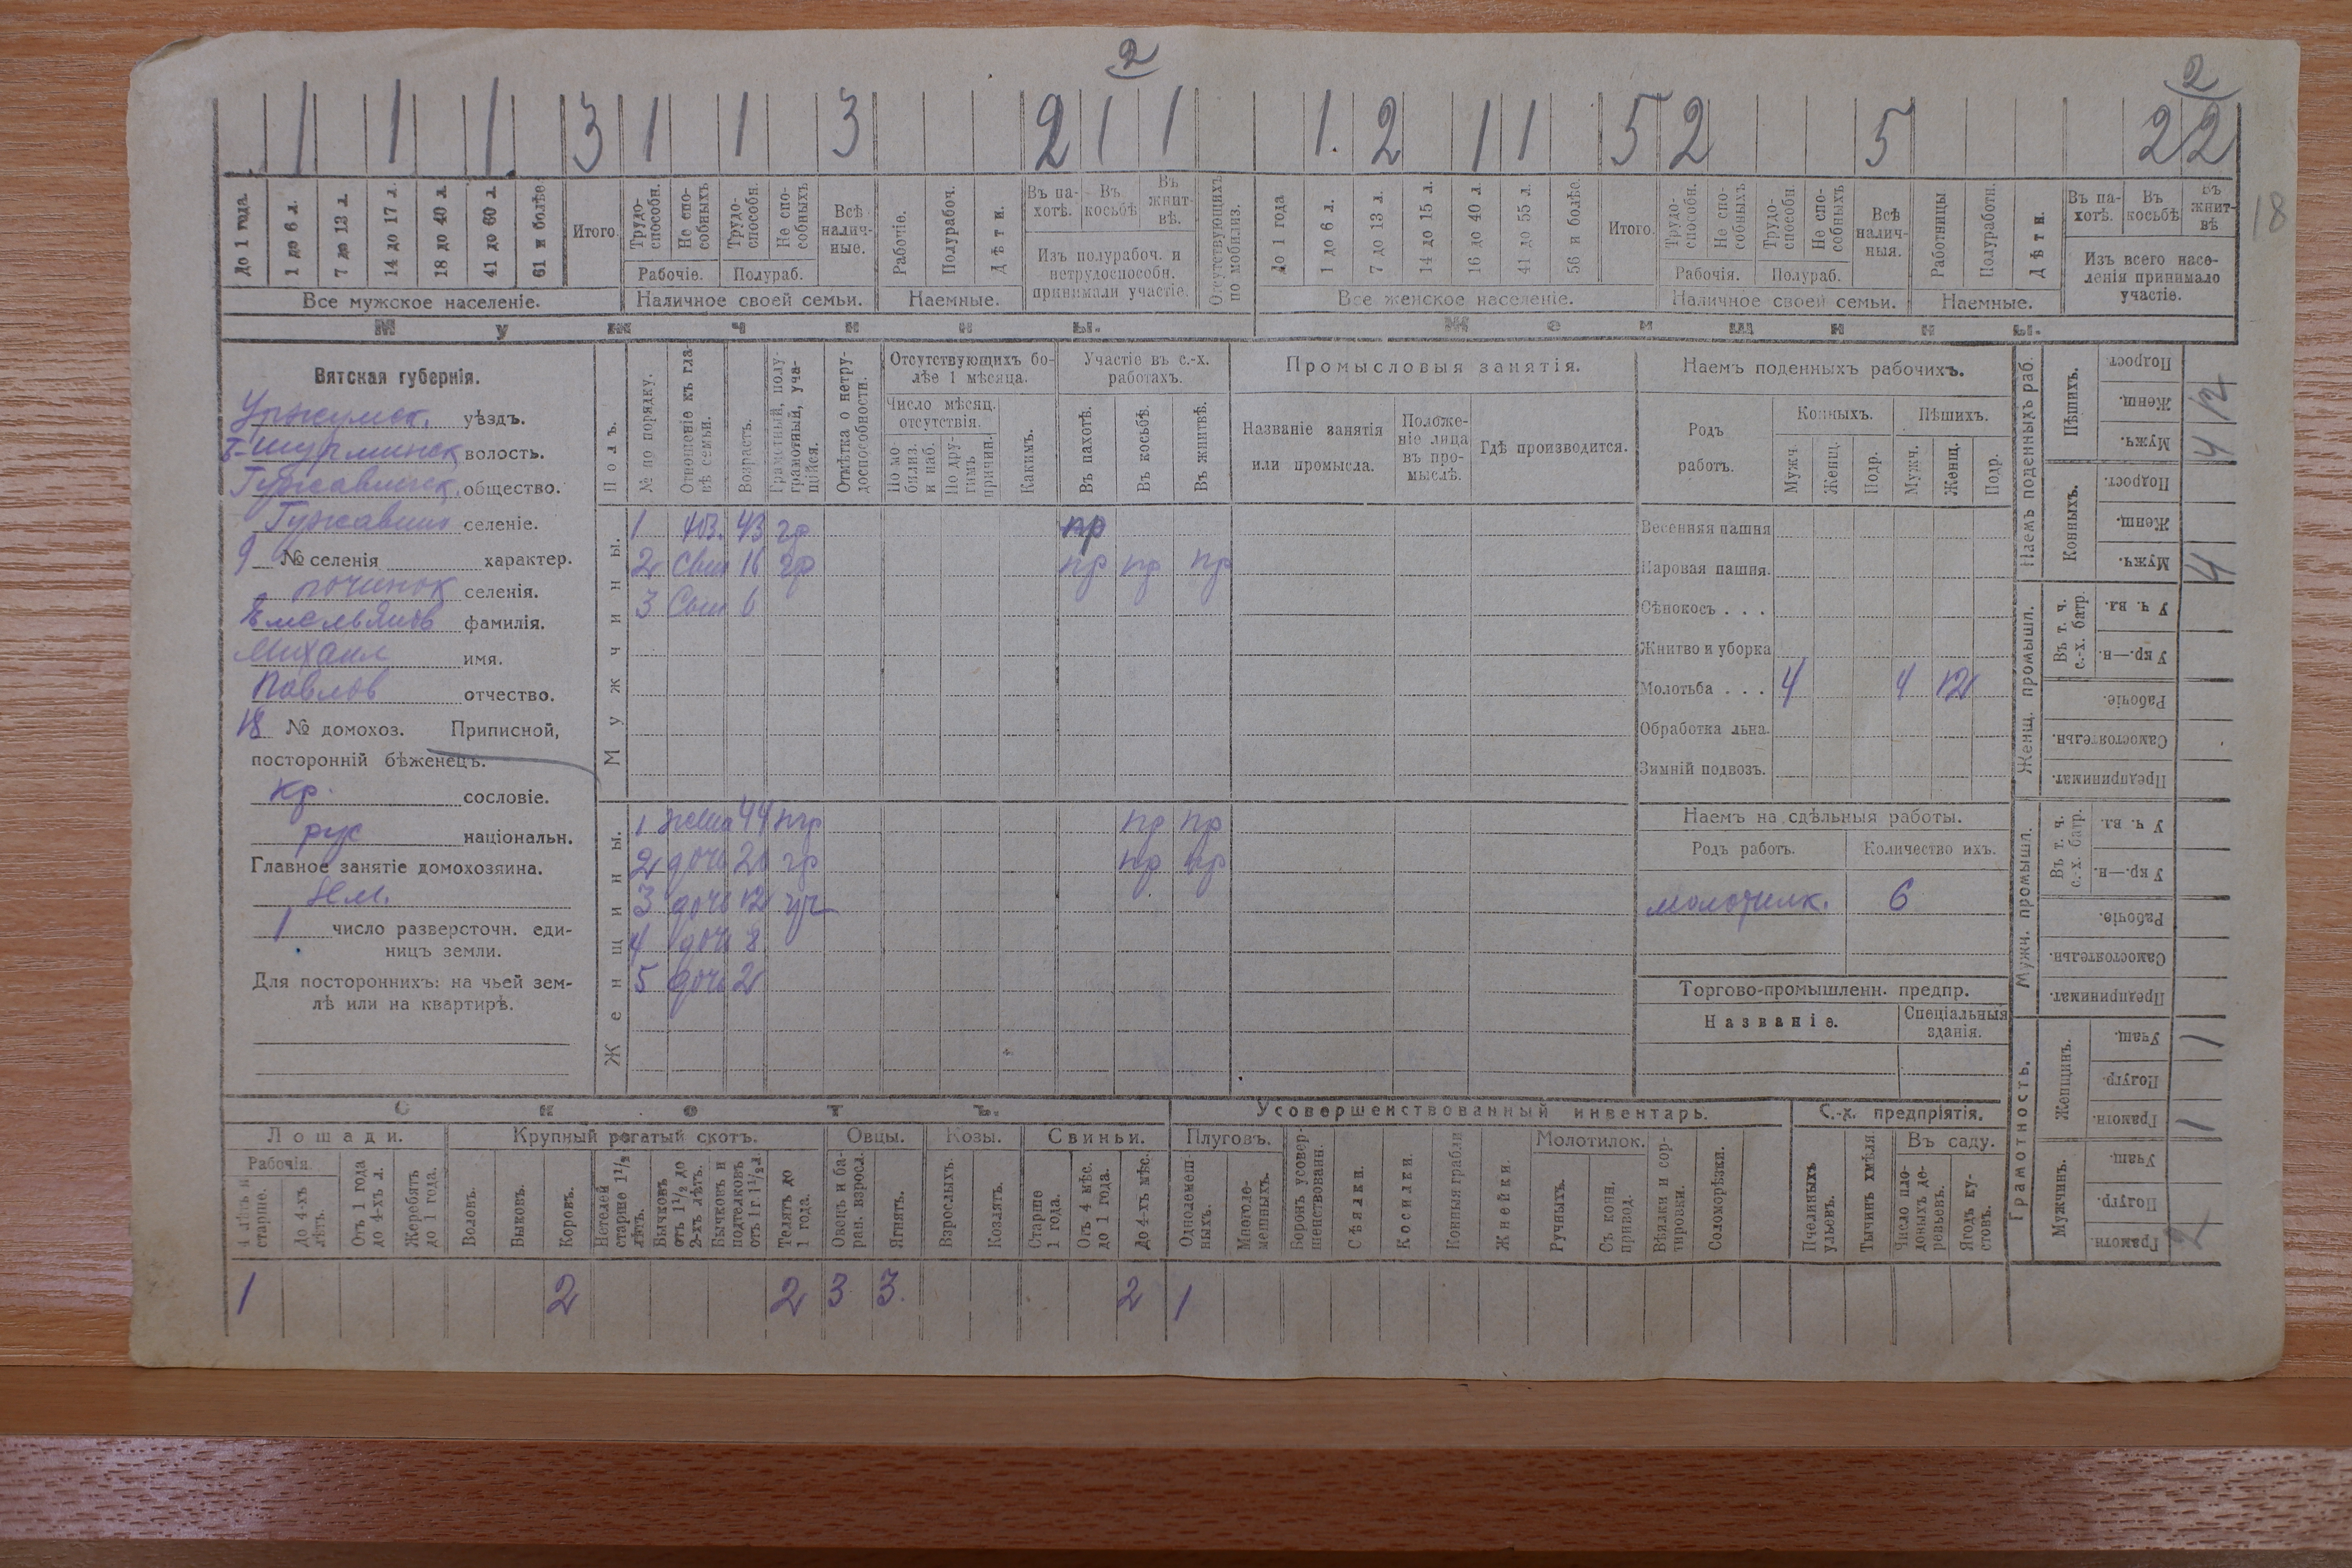 2
2
1 1 1 3 1 1 3 2 1 1 1. 2 1 1 5 2 5 2 2
18
До 1 года.
1 до 6 л.
7 до 13 л.
14 до 17 л.
18 до 40 л.
41 до 60 л.
61 и болѣе.
Итого.
Трудо-способн.
Не спо-собныхъ
Трудо-способн.
Не спо-собныхъ
Всѣ налич-ные.
Рабочіе.
Полурабоч.
Дѣти.
Въ па-хотѣ.
Въ косьбѣ
Въ жнит-вѣ.
Отсутствующихъ по мобилиз.
До 1 года
1 до 6 л.
7 до 13 л.
14 до 15 л.
16 до 40 л.
41 до 55 л.
56 и болѣе.
Итого.
Трудо-способн.
Не спо-собныхъ
Трудо-способн.
Не спо-собныхъ
Всѣ налич-ныя.
Работницы
Полуработн.
Дѣти.
Въ па-хотѣ.
Въ косьбѣ
Въ жнит-вѣ
Рабочіе. Полураб.
Изъ полурабоч. и нетрудоспособн. принимали участіе.
Рабочія. Полураб.
Изъ всего насе-ленія принимало участіе.
Все мужское населеніе. Наличное своей семьи. Наемные. Все женское населеніе. Наличное своей семьи. Наемные.
Мужчины. Женщины.
Вятская губернія.
Уржумск. уѣздъ.
Б-Шурминск волость.
Гужавинск. общество.
Гужавино селеніе.
9 № селенія характер.
починок селенія.
Емельянов фамилія.
Михаил имя.
Павлов отчество.
18 № домохоз. Приписной,
посторонній бѣженецъ.
кр. сословіе.
рус національн.
Главное занятіе домохозяина.
земл.
1 число разверсточн. еди-
ницъ земли.
Для постороннихъ: на чьей зем-
лѣ или на квартирѣ.
Полъ.
№ по порядку.
Отношеніе къ гла-вѣ семьи.
Возрастъ.
Грамотный, полу-грамотный, уча-щійся.
Отмѣтка о нетру-доспособности.
Отсутствующихъ бо-лѣе 1 мѣсяца.
Число мѣсяц. отсутствія.
По мо-билиз. и наб.
По дру-гимъ причин.
Какимъ.
Участіе въ с.-х. работахъ.
Въ пахотѣ.
Въ косьбѣ.
Въ жнитвѣ.
Промысловыя занятія.
Названіе занятія или промысла.
Положе-ніе лица въ про-мыслѣ.
Гдѣ производится.
Мужчины.
1 хоз. 43 гр пр
2 сын 16 гр пр пр пр
3 Сын 6
Женщины.
1 жена 44 нгр пр пр
2 дочь 20 гр пр пр
3 дочь 12 уч
4 дочь 8
5 дочь 2
Наемъ поденныхъ рабочихъ.
Родъ работъ.
Конныхъ. Пѣшихъ.
Мужч. Женщ. Подр. Мужч. Женщ. Подр.
Весенняя пашня
Паровая пашня.
Сѣнокосъ . . .
Жнитво и уборка
Молотьба . . . 4 4 12
Обработка льна.
Зимній подвозъ.
Наемъ на сдѣльныя работы.
Родъ работъ. Количество ихъ.
молотилк. 6
Торгово-промышленн. предпр.
Названіе. Спеціальныя зданія.
Наемъ поденныхъ раб.
Пѣшихъ.
Подрост.
Женщ. 12
Мужч. 4
Конныхъ.
Подрост.
Женщ.
Мужч. 4
Женщ. промышл.
Въ т. ч. с.-х. батр.
У ч. вл.
У кр.—н.
Рабочіе.
Самостоятельн.
Предпринимат.
Мужч. промышл.
Въ т. ч. с.-х. батр.
У ч. вл.
У кр.—н.
Рабочіе.
Самостоятельн.
Предпринимат.
Грамотность.
Женщинъ.
Учащ. 1
Полугр.
Грамотн. 1
Мужчинъ.
Учащ.
Полугр.
Грамотн. 2
Скотъ. Усовершенствованный инвентарь. С.-х. предпріятія.
Лошади. Крупный рогатый скотъ. Овцы. Козы. Свиньи. Плуговъ. Молотилок. Въ саду.
Рабочія.
4 лѣтъ и старше.
До 4-хъ лѣтъ.
Отъ 1 года до 4-хъ л.
Жеребятъ до 1 года.
Воловъ.
Быковъ.
Коровъ.
Нетелей старше 1 1/2 лѣтъ.
Бычковъ отъ 1 1/2 до 2-хъ лѣтъ.
Бычковъ и подтелковъ отъ 1 г. 1 1/2 л.
Телятъ до 1 года.
Овецъ и ба-ран. взросл.
Ягнятъ.
Взрослыхъ.
Козлятъ.
Старше 1 года.
Отъ 4 мѣс. до 1 года.
До 4-хъ мѣс.
Однолемеш-ныхъ.
Многоле-мешныхъ.
Боронъ усовер-шенствованн.
Сѣялки.
Косилки.
Конныя грабли
Жнейки.
Ручныхъ.
Съ конн. привод.
Вѣялки и сор-тировки.
Соломорѣзки.
Пчелиныхъ ульевъ.
Тычинъ хмѣля.
Число пло-довыхъ де-ревьевъ.
Ягодъ ку-стовъ.
1 2 2 3 3. 2 1